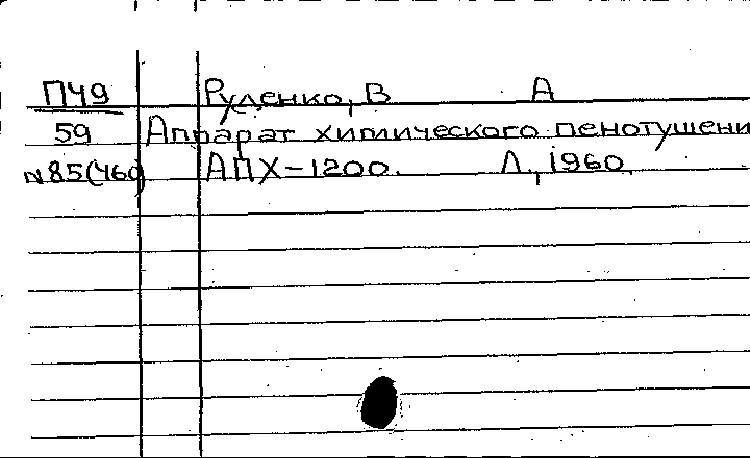 П49 Руденко, В А
59 Аппарат химического пенотушени
N85(460) АПХ-1200. Л., 1960